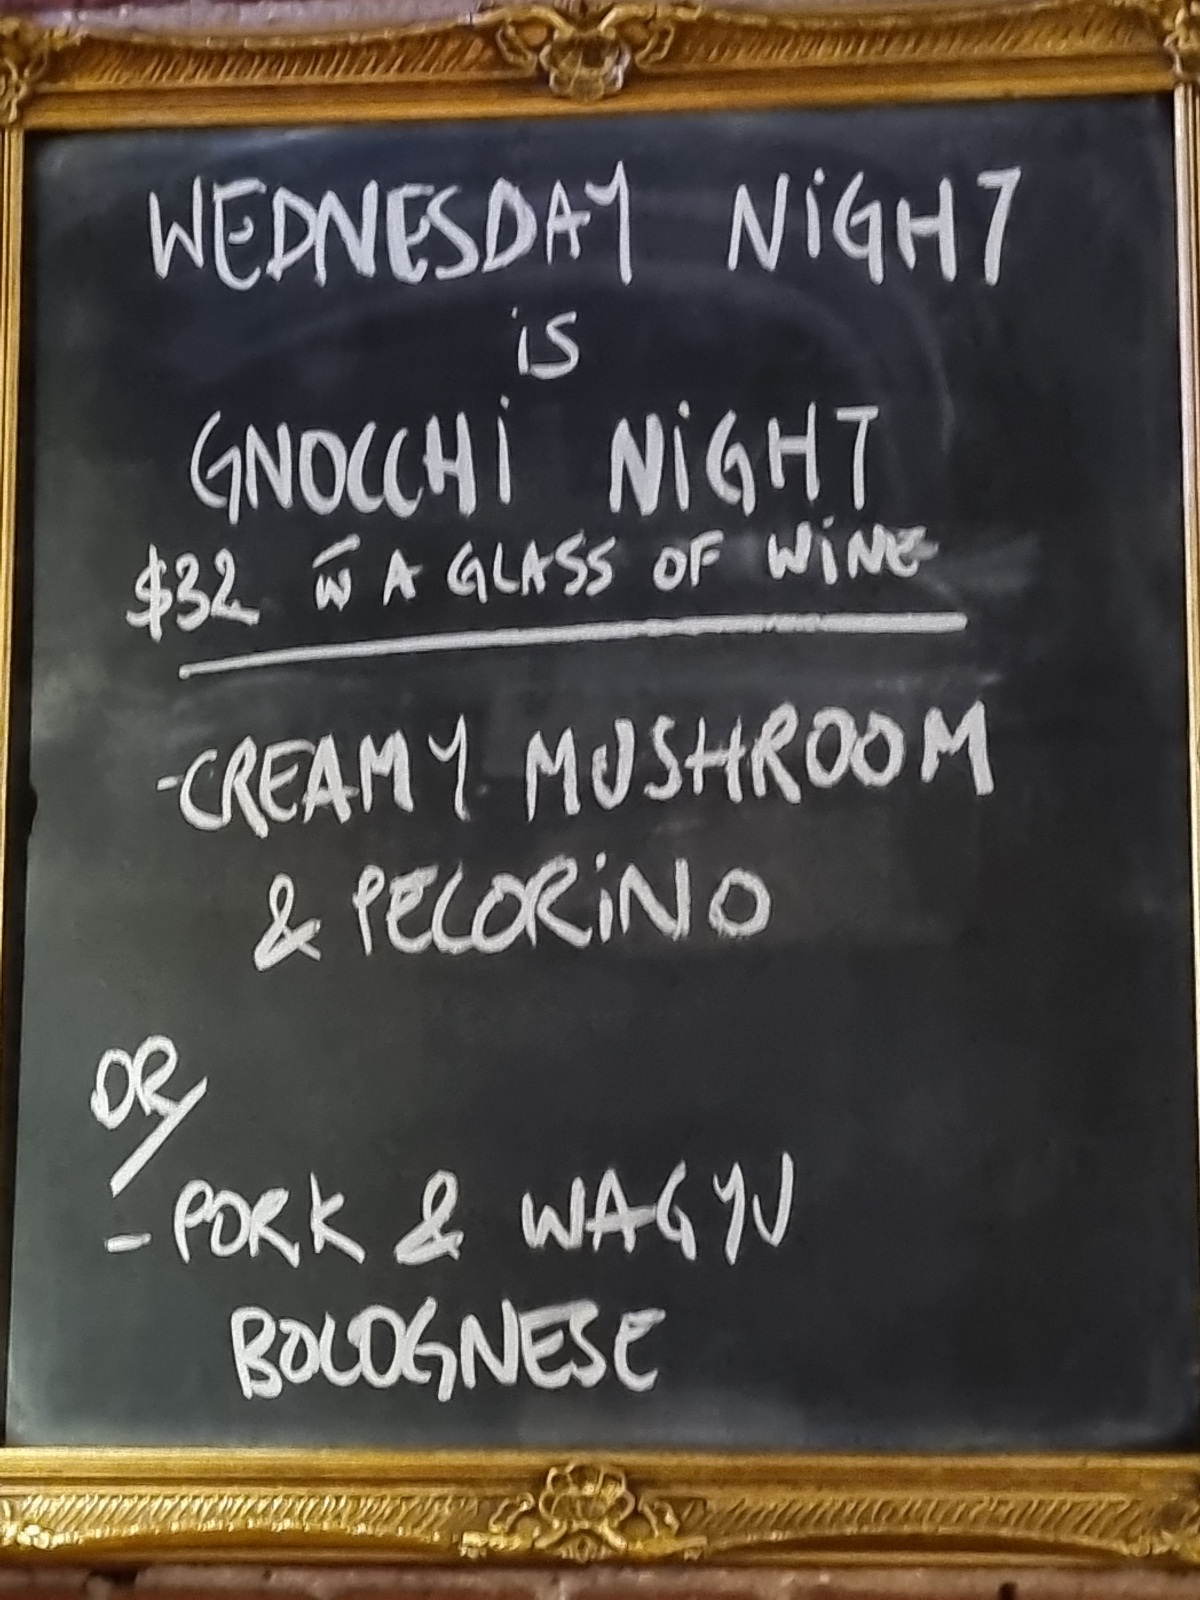 WEDNESDAY NiGHT
iS
GNOCCHi NiGHT
$32 w̄ A GLASS OF WiNE
-CREAMY MUSHROOM
& PECORiNO
OR/
- PORK & WAGYU
BOLOGNESE